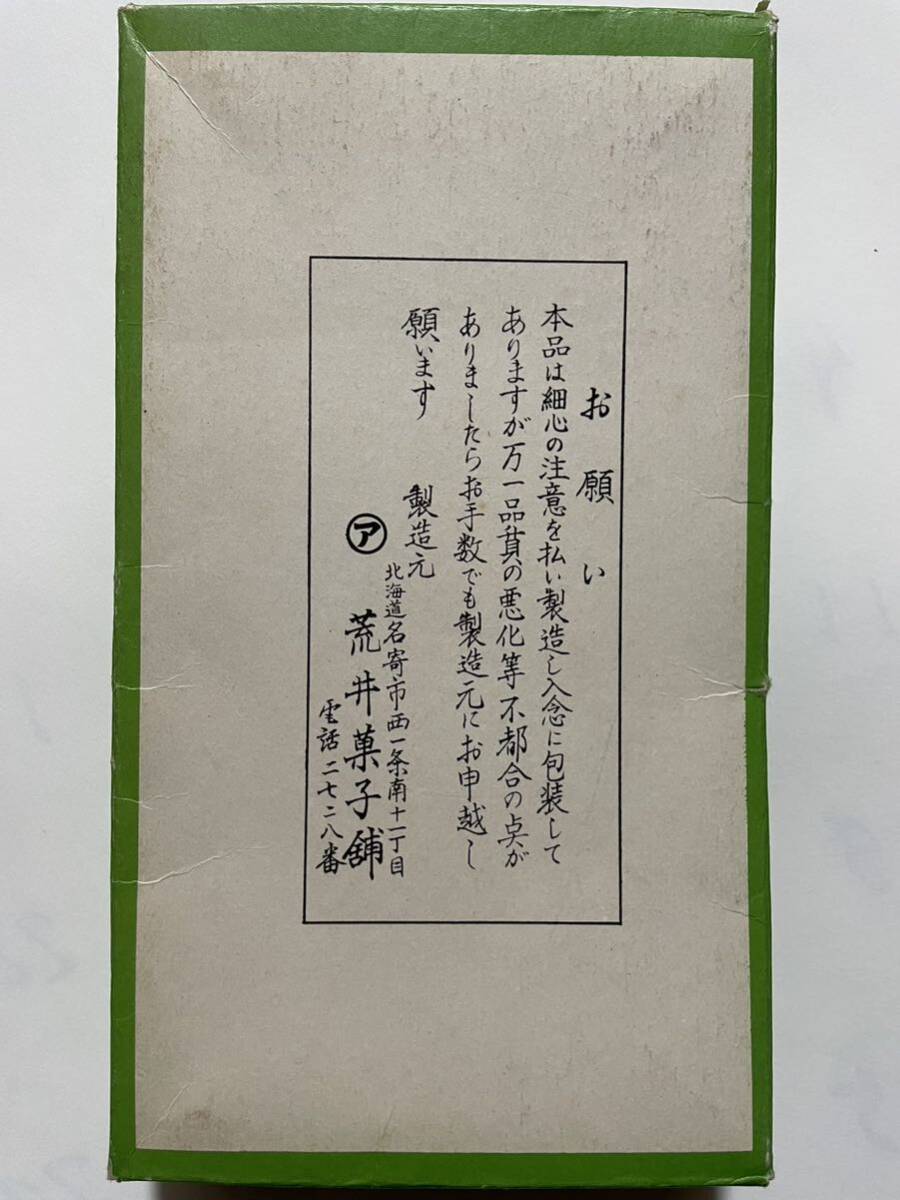 お願い
本品は細心の注意を払い製造し入念に包装して
ありますが万一品質の悪化等不都合の点が
ありましたらお手数でも製造元にお申越し
願います
製造元
北海道名寄市西一条南十一丁目
㋐ 荒井菓子舗
電話二七二八番